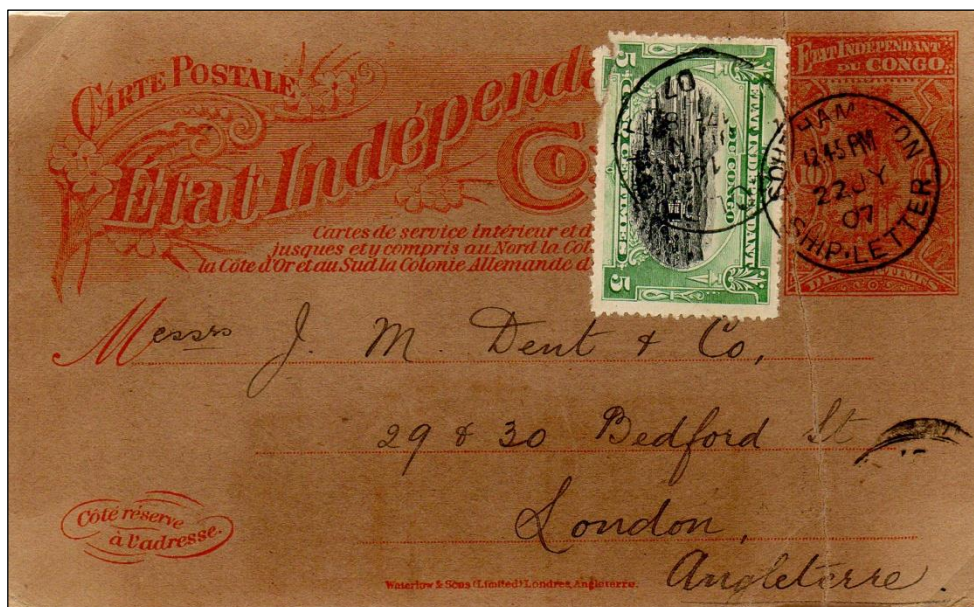 CARTE POSTALE
État Indépenda
Co
Cartes de service intérieur et d
jusques et y compris au Nord la Col
la Côte d'Or et au Sud la Colonie Allemande d
ETAT INDÉPENDANT
DU CONGO
5
ETAT INDÉPENDANT
DU CONGO
CENTIMES
5
SOUTHAMPTON
12.45 PM
22 JY
07
SHIP-LETTER
Messrs J. M. Dent & Co,
29 & 30 Bedford St
London,
Angleterre.
Côté réservé
à l'adresse.
Waterlow & Sons (Limited) Londres, Angleterre.